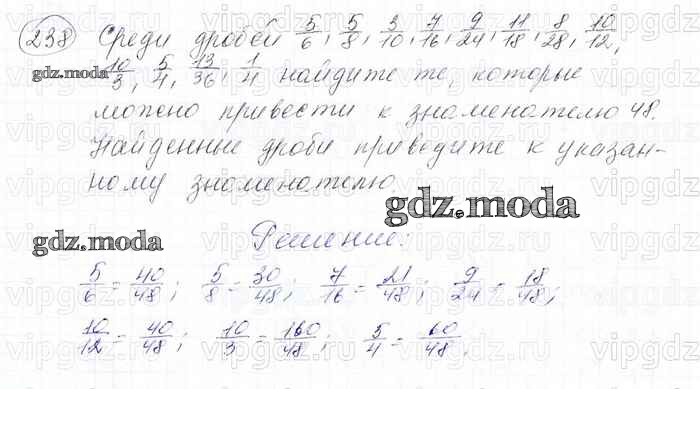 238 Среди дробей 5/6, 5/8, 3/10, 7/16, 9/24, 11/18, 8/28, 10/12,
gdz.moda 10/3, 5/4, 13/36, 1/4 найдите те, которые
можно привести к знаменателю 48.
Найденные дроби приведите к указан-
ному знаменателю.
gdz.moda
gdz.moda Решение:
5/6 = 40/48; 5/8 = 30/48; 7/16 = 21/48; 9/24 = 18/48;
10/12 = 40/48; 10/3 = 160/48; 5/4 = 60/48.